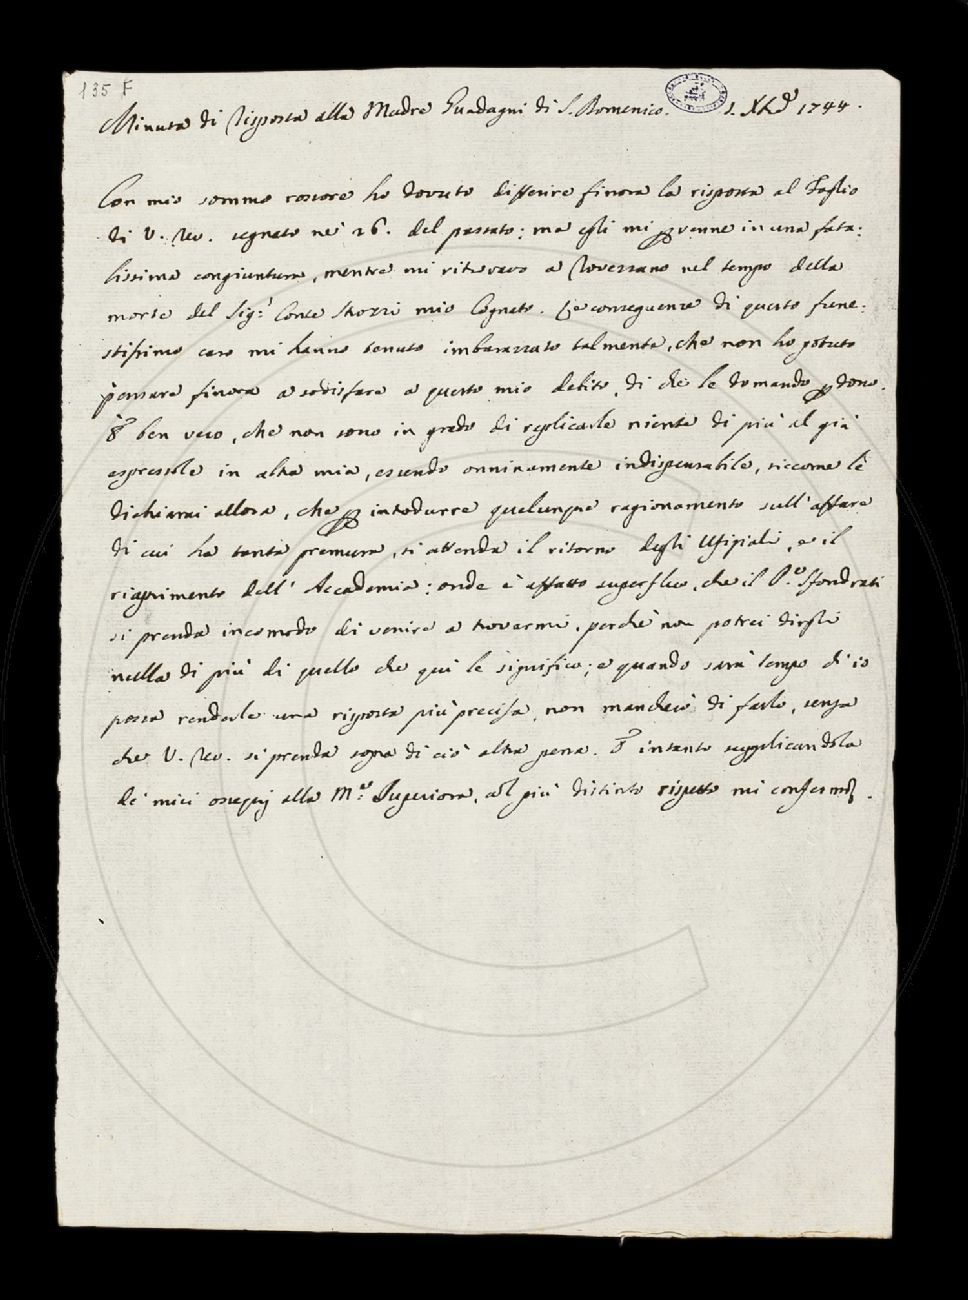 135 F
Minuta di Risposta alla Madre Guadagni di S. Domenico. 1. Xbre 1744.
Con mio sommo rossore ho dovuto differire finora la risposta al Foglio
di V. Rev. segnato nei 26. del passato; ma egli mi pervenne in una fata:
lissima congiuntura, mentre mi ritrovavo a Rovezzano nel tempo della
morte del Sig.r Conte Strozzi mio Cognato. Le conseguenze di questo fune:
stissimo caso mi hanno tenuto imbarazzato talmente, che non ho potuto
pensare finora a sodisfare a questo mio debito, di che le domando perdono.
È ben vero, che non sono in grado di replicarle niente di più al già
espressole in altra mia, essendo onninamente indispensabile, siccome le
dichiarai allora, che per introdurre qualunque ragionamento sull' affare
di cui ha tanta premura, si attenda il ritorno degli Ufiziali, e il
riaprimento dell' Accademia: onde è affatto superfluo, che il P.re Sfondrati
si prenda incomodo di venire a trovarmi, perchè non potrei dirgli
nulla di più di quello che qui le significo; e quando sarà tempo ch' io
possa renderle una risposta più precisa, non mancherò di farlo, senza
che V. Rev. si prenda sopra di ciò altra pena. E intanto supplicandola
de' miei ossequj alla M.e Superiora, col più distinto rispetto mi confermo.